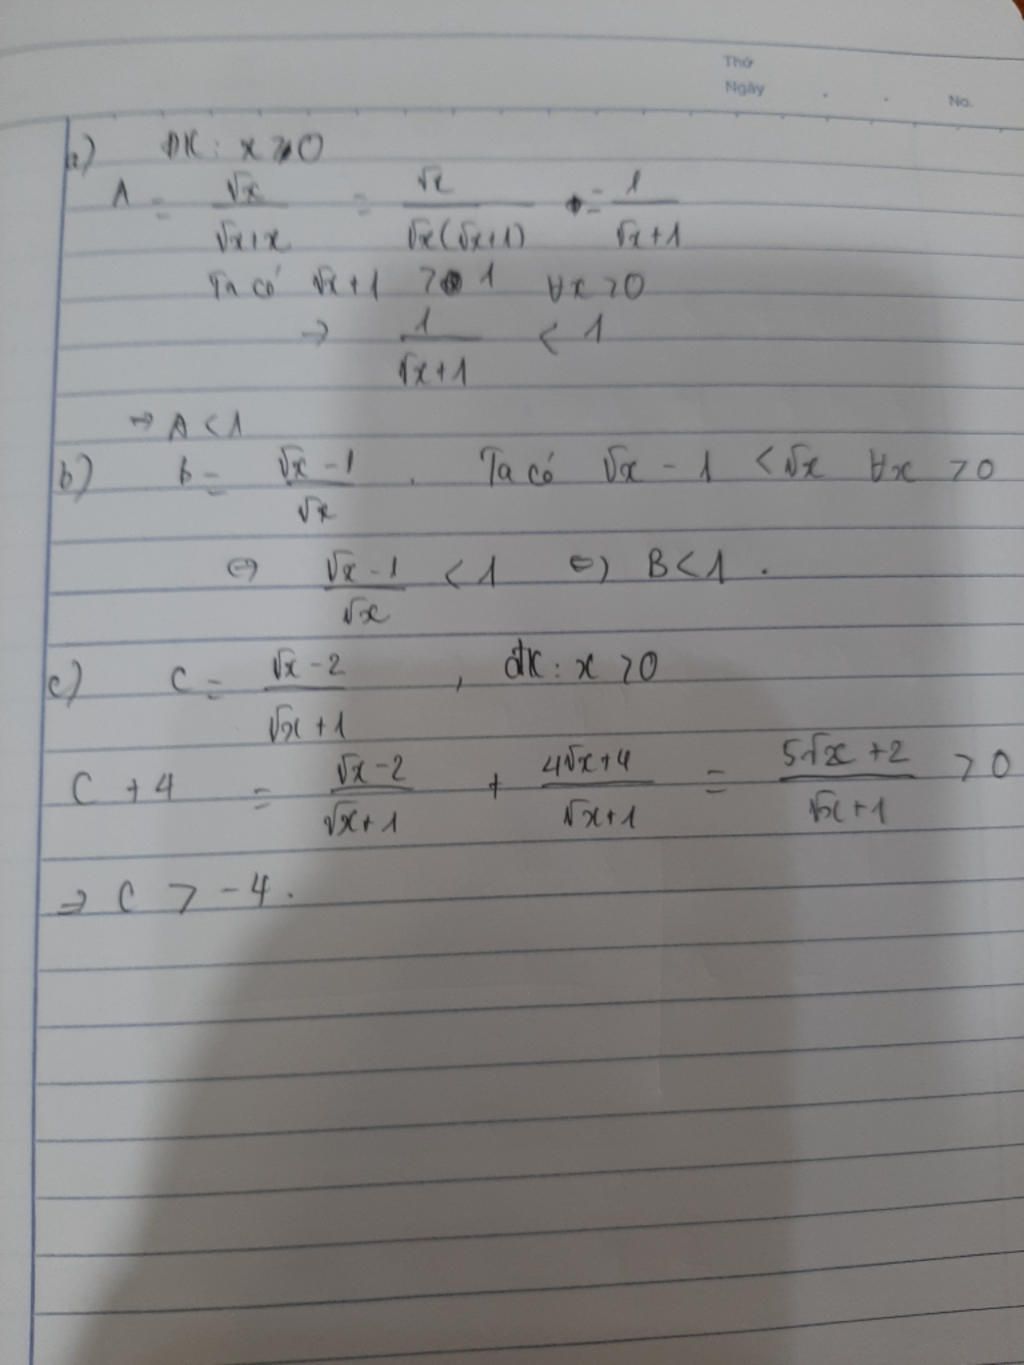 Thứ
Ngày . . No.
a) ĐK: x > 0
A = √x / (√x + x) = √x / (√x(√x+1)) = 1 / (√x+1)
Ta có √x+1 > 1 ∀x > 0
→ 1 / (√x+1) < 1
⇒ A < 1
b) B = (√x - 1) / √x . Ta có √x - 1 < √x ∀x > 0
⇔ (√x - 1) / √x < 1 ⇔ B < 1 .
c) C = (√x - 2) / (√x + 1) , đk: x > 0
C + 4 = (√x - 2) / (√x + 1) + (4√x + 4) / (√x + 1) = (5√x + 2) / (√x + 1) > 0
⇒ C > -4 .